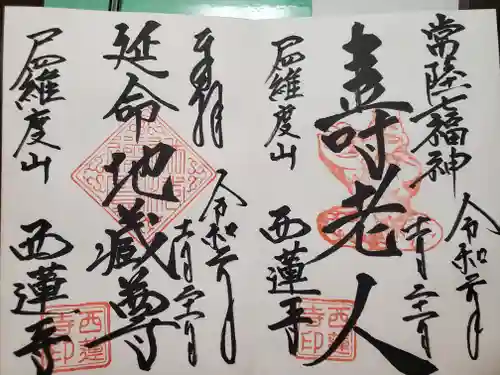 常陸七福神
令和元年
十一月二十二日
寿老人
尸羅維度山
西蓮寺
西蓮
寺印
奉拝
令和元年
十一月二十二日
延命地蔵尊
尸羅維度山
西蓮寺
西蓮
寺印